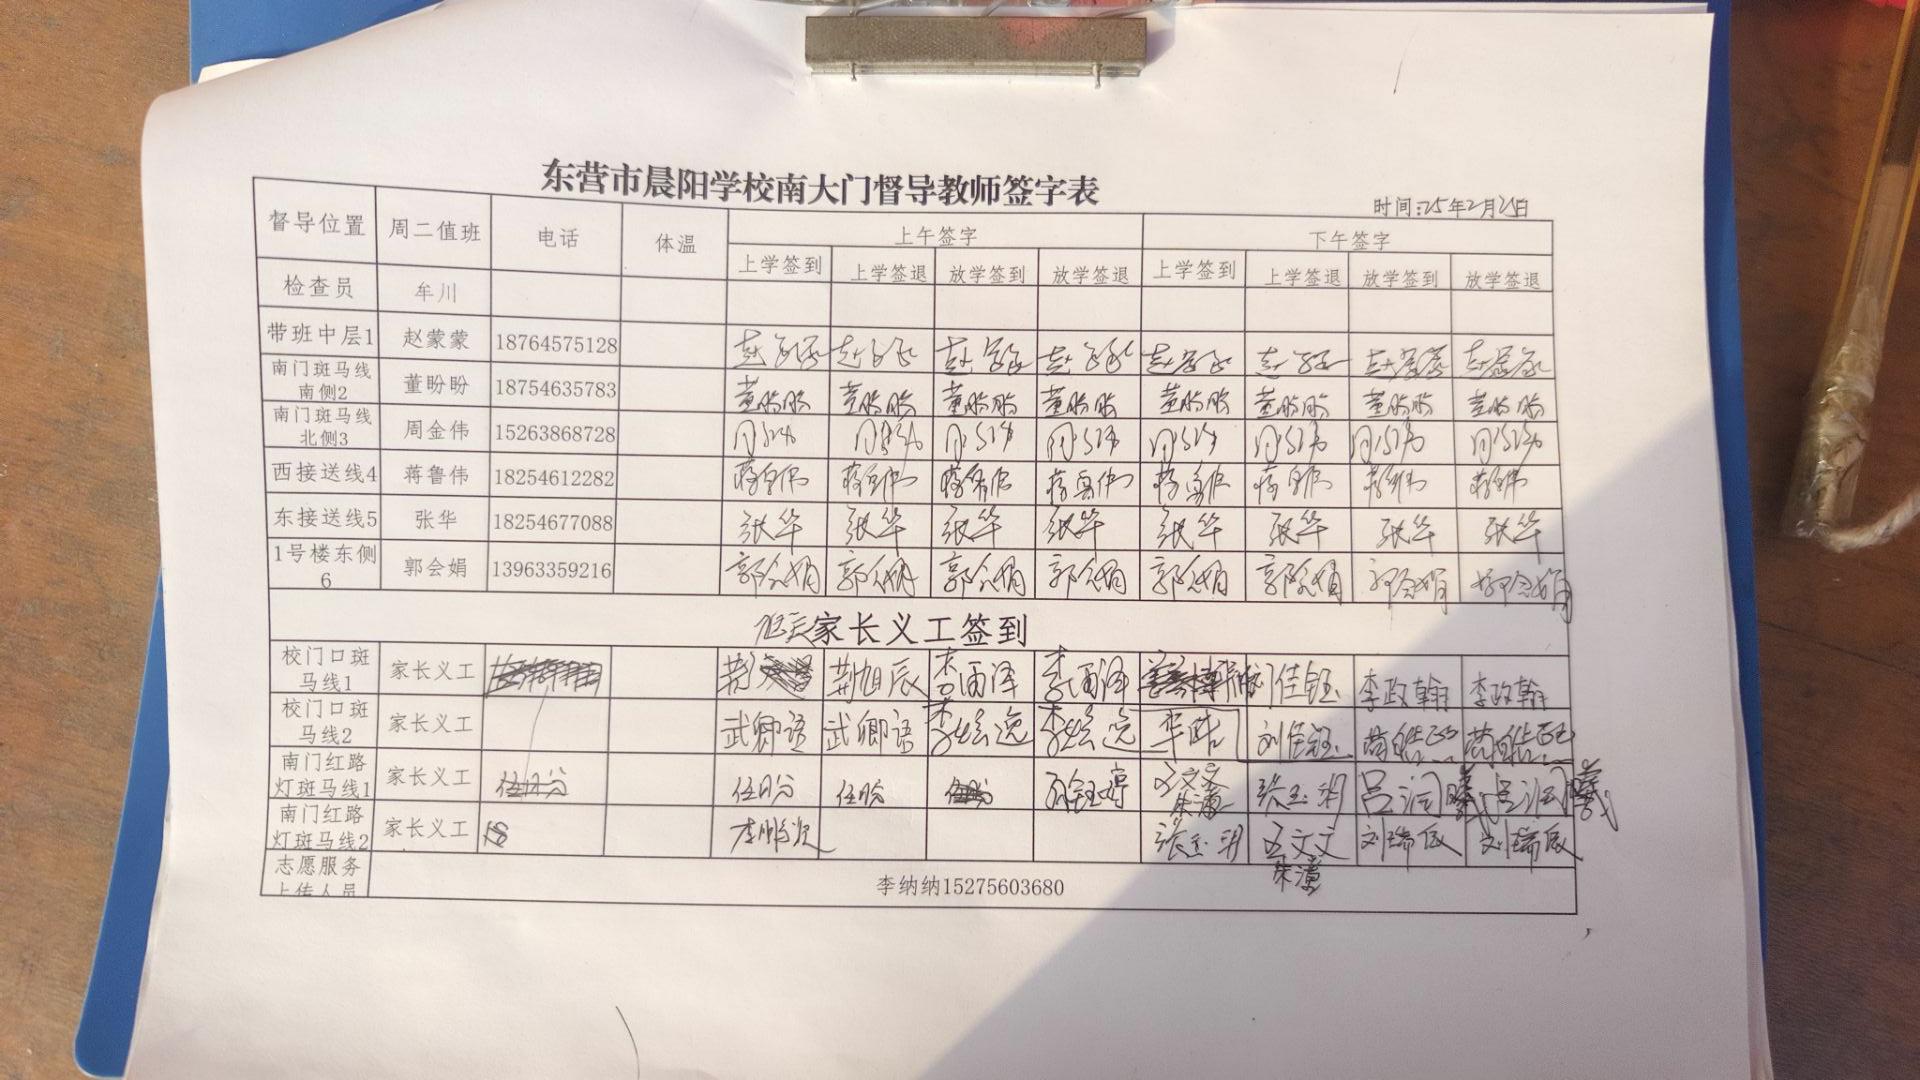 东营市晨阳学校南大门督导教师签字表
时间:25年2月25日
督导位置 周二值班 电话 体温 上午签字 下午签字
上学签到 上学签退 放学签到 放学签退 上学签到 上学签退 放学签到 放学签退
检查员 牟川
带班中层1 赵蒙蒙 18764575128 赵蒙蒙 赵蒙蒙 赵蒙蒙 赵蒙蒙 赵蒙蒙 赵蒙蒙 赵蒙蒙 赵蒙蒙
南门斑马线
南侧2 董盼盼 18754635783 董盼盼 董盼盼 董盼盼 董盼盼 董盼盼 董盼盼 董盼盼 董盼盼
南门斑马线
北侧3 周金伟 15263868728 周金伟 周金伟 周金伟 周金伟 周金伟 周金伟 周金伟 周金伟
西接送线4 蒋鲁伟 18254612282 蒋鲁伟 蒋鲁伟 蒋鲁伟 蒋鲁伟 蒋鲁伟 蒋鲁伟 蒋鲁伟 蒋鲁伟
东接送线5 张华 18254677088 张华 张华 张华 张华 张华 张华 张华 张华
1号楼东侧
6 郭会娟 13963359216 郭会娟 郭会娟 郭会娟 郭会娟 郭会娟 郭会娟 郭会娟 郭会娟
家长义工签到
校门口斑
马线1 家长义工 荆旭辰 李雨泽 李雨泽 刘佳钰 李政翰 李政翰
校门口斑
马线2 家长义工 武卿语 武卿语 华皓 刘佳钰
南门红路
灯斑马线1 家长义工 伍盼 张玉玥 吕润曦 吕润曦
南门红路
灯斑马线2 家长义工 张玉玥 孟文文 刘瑞宸 刘瑞宸
朱濛
志愿服务
上传人员 李纳纳15275603680